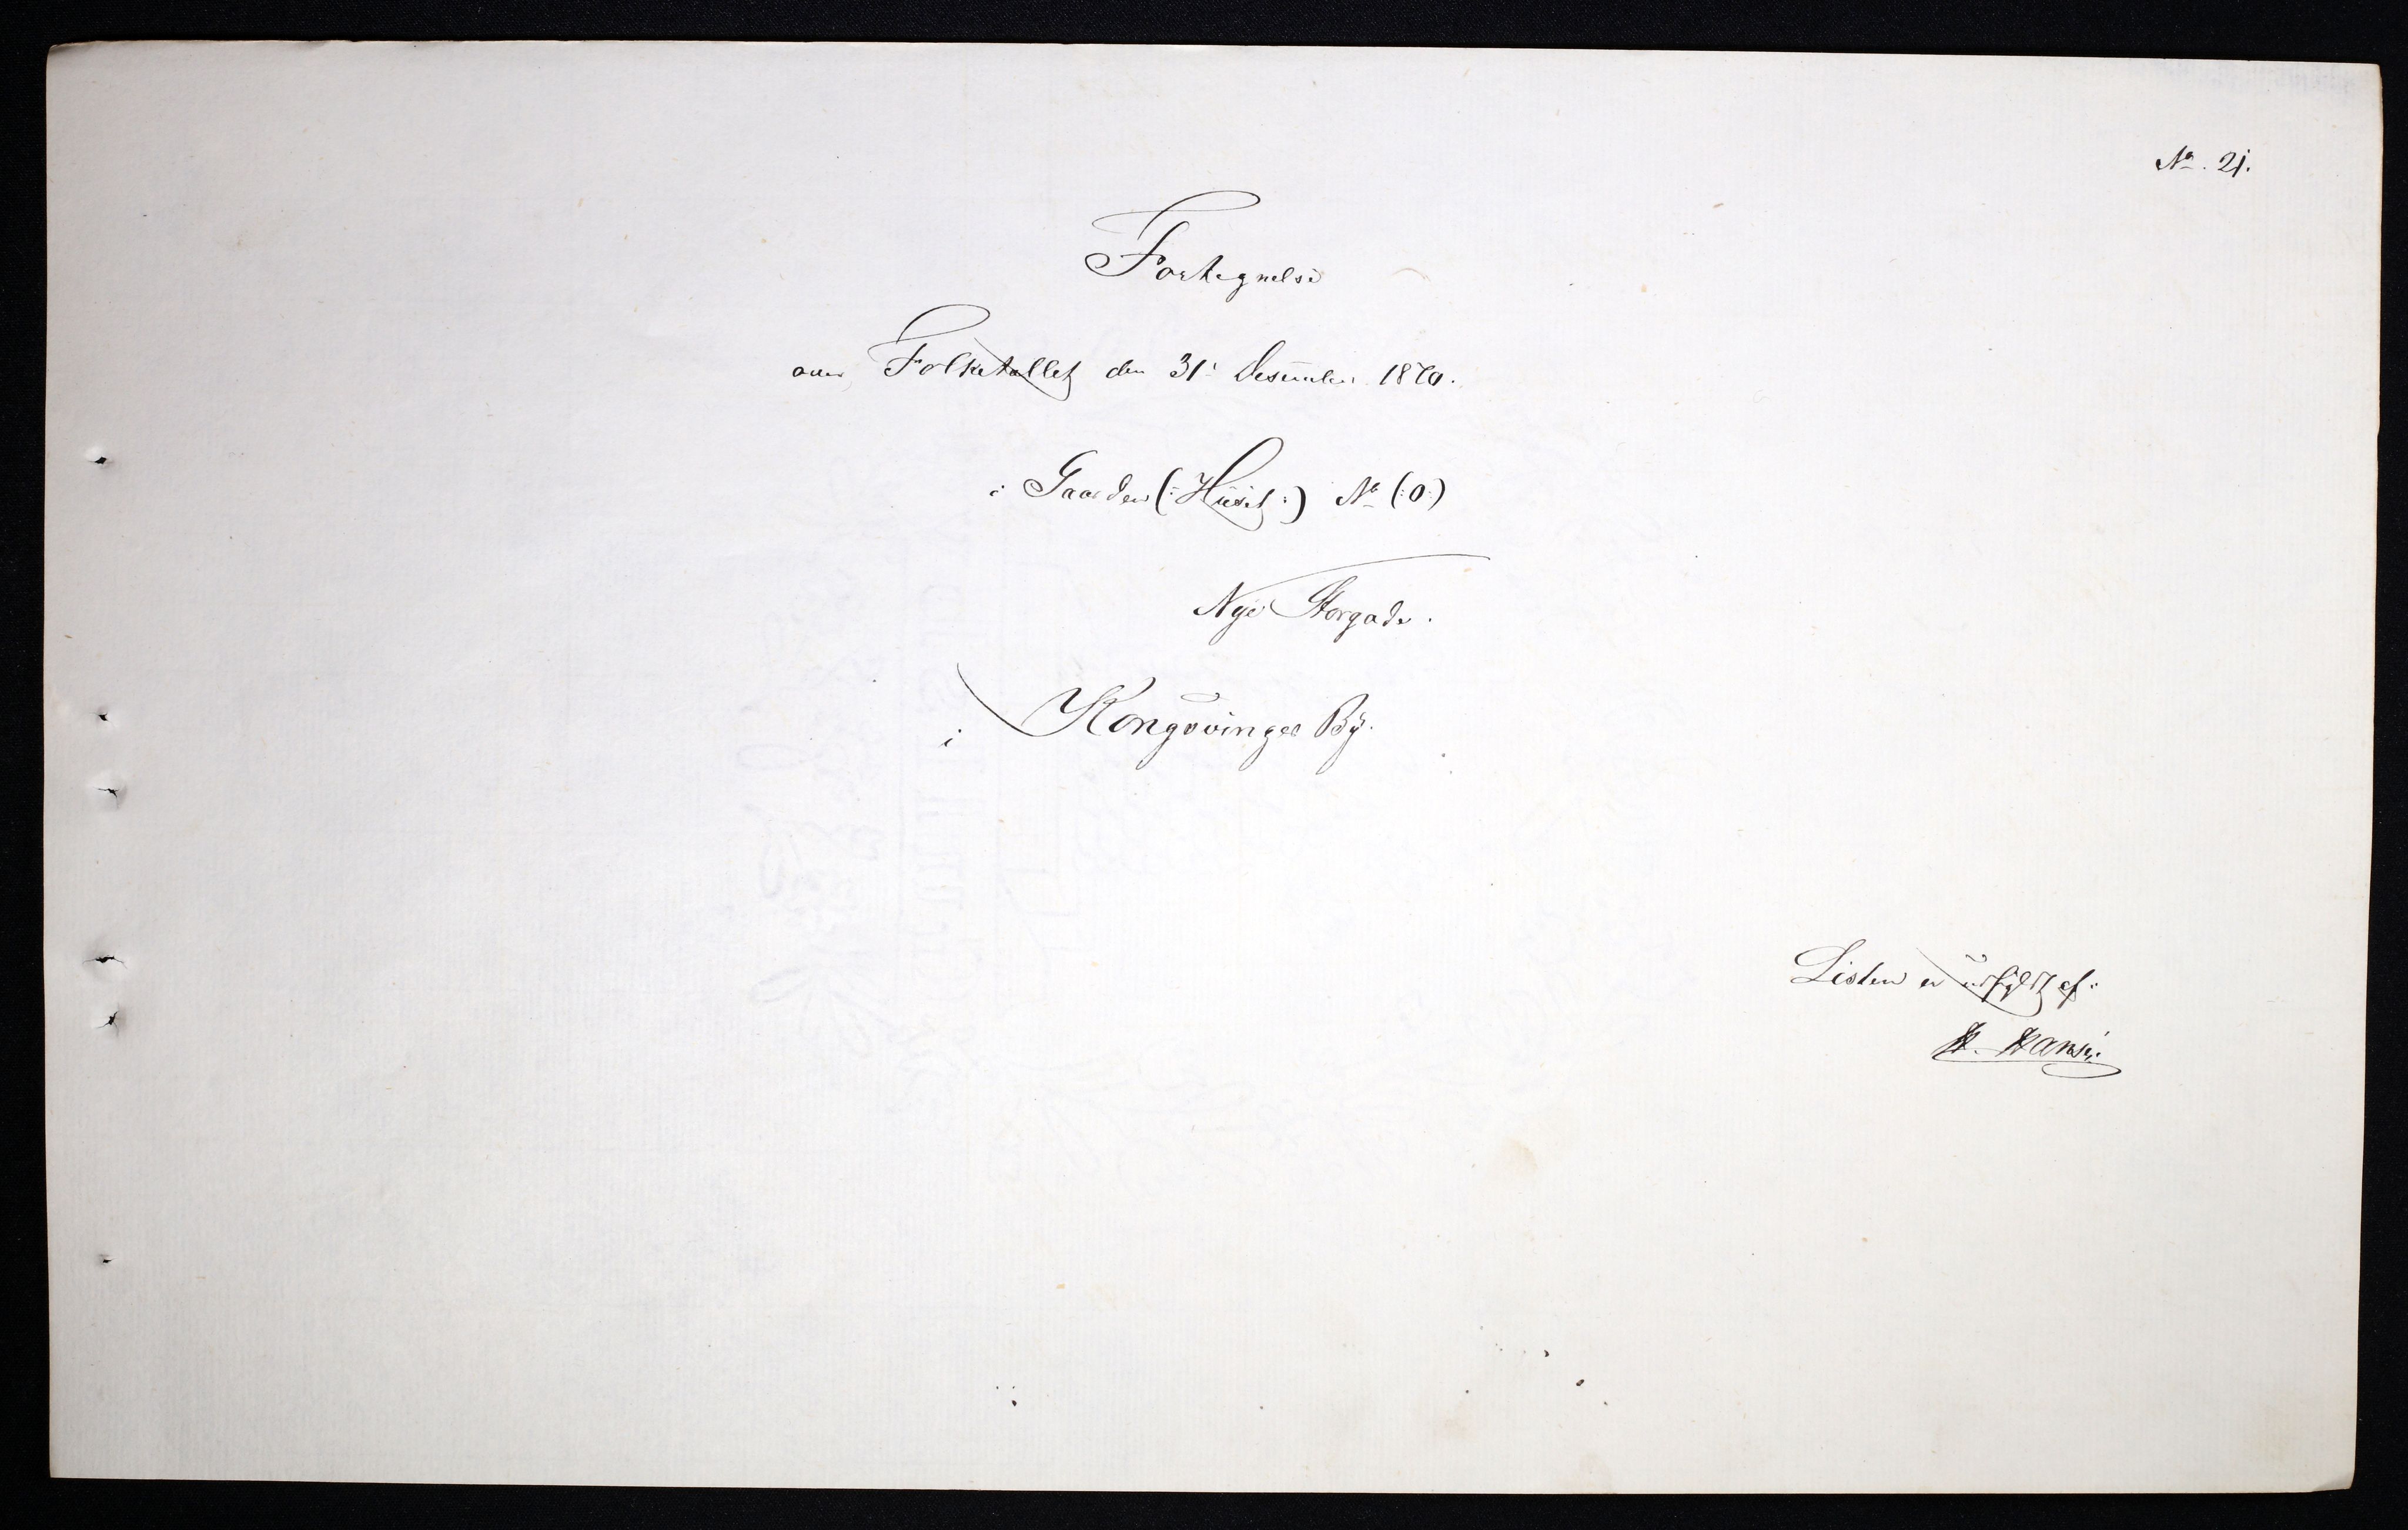 No. 21.
Fortegnelse
over Folketallet den 31' Desember 1870.
i Gaarden (: Huset :) No (:0:)
Nye Storgade.
i Kongsvinger By.
Listen er udfyldt af:
H. Hansen